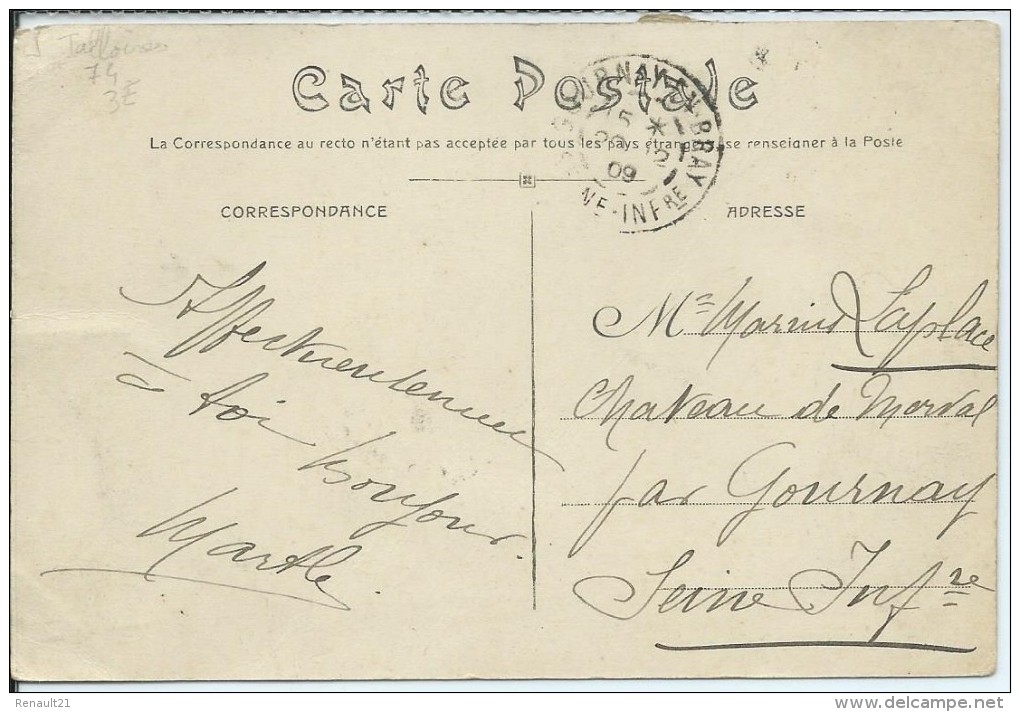 Talloires
74
3E
Carte Postale
La Correspondance au recto n'étant pas acceptée par tous les pays étrangers, se renseigner à la Poste
GOURNAY-EN-BRAY
15 *
12
09
NE-INFRE
CORRESPONDANCE
ADRESSE
Affectueusement
à toi bonjour.
Marthe
Me Marius Laplace
Chateau de Merval
par Gournay
Seine Infre
Renault21
delcampe.net